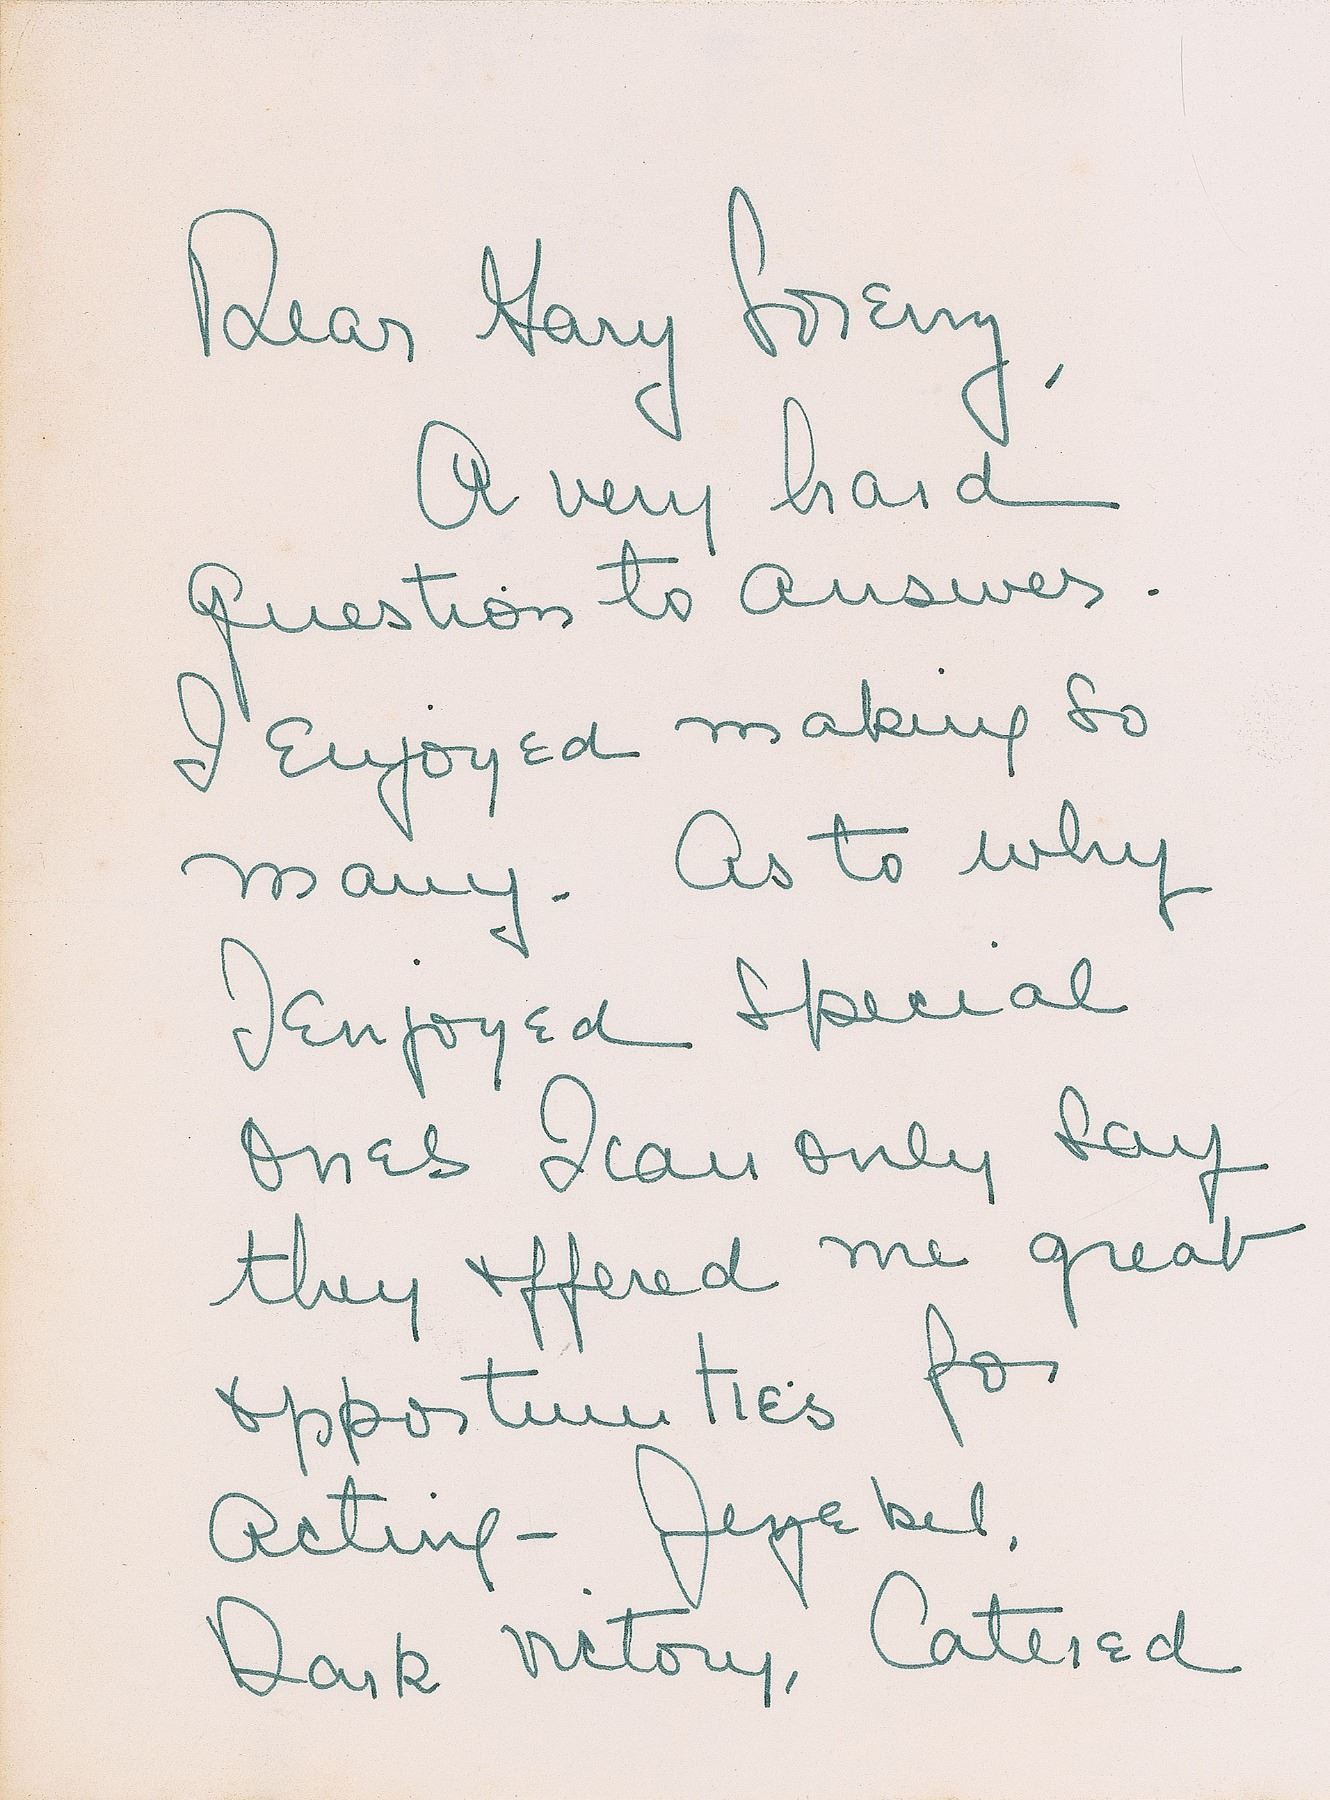 Dear Gary Soreny,
A very hard
question to answer.
I Enjoyed making so
many. As to why
I Enjoyed special
ones I can only say
they offered me great
opportunities for
acting - Jezebel,
Dark victory, Catered